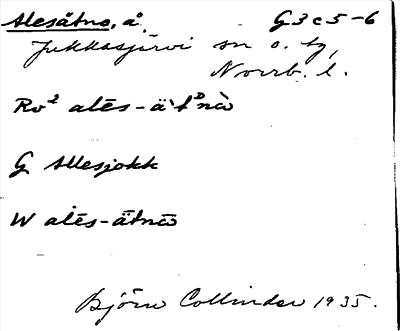 Alesätno, å. G3c5-6
Jukkasjärvi sn o. tg,
Norrb. l.
Rv² alēs-ä't́ᴰnò
G Allesjokk
W alēs-ätnō
Björn Collinder 1935.